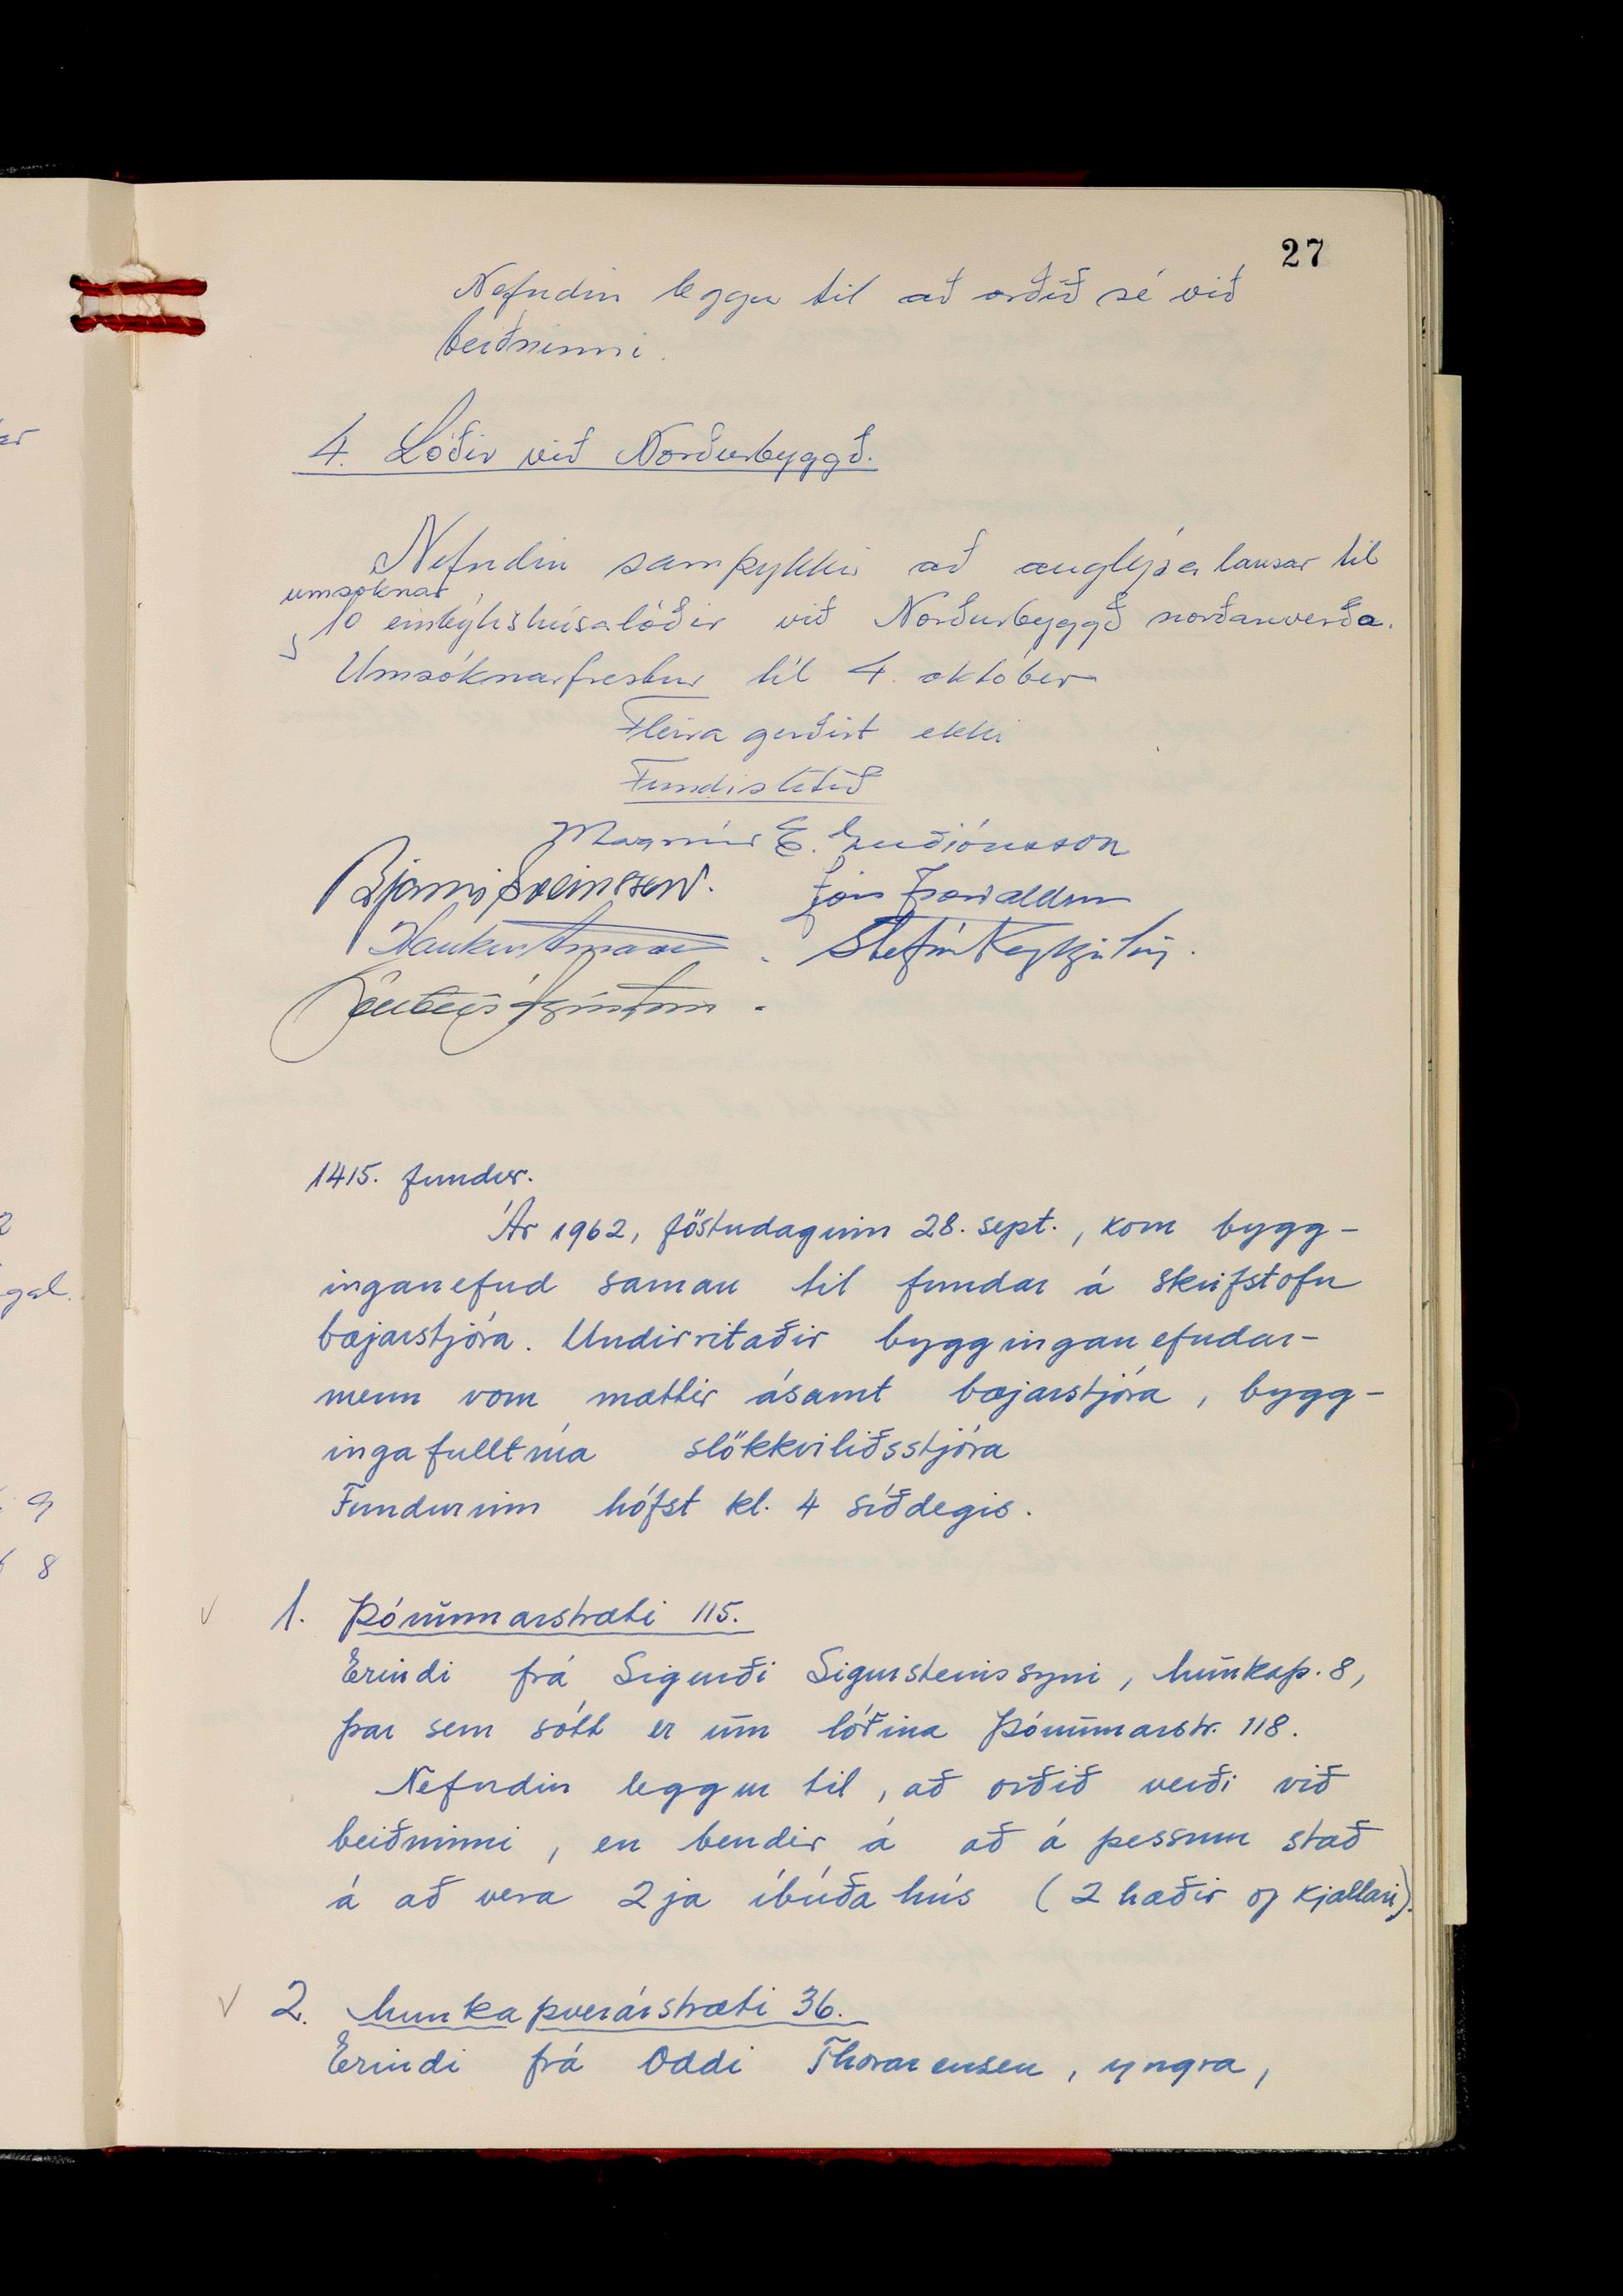 27
Nefndin leggur til að orðið sé við
beiðninni.
4. Lóðir við Norðurbyggð.
Nefndin samþykkir að auglýsa lausar til
umsóknar
10 einbýlishúsalóðir við Norðurbyggð norðanverða.
Umsóknarfrestur til 4. október
Fleira gerðist ekki
Fundi slitið
Magnús E. Guðjónsson
Bjarni Sveinsson. Jón Þorvaldsson
Haukur Árnason. Stefán Reykjalín.
1415. fundur.
Ár 1962, föstudaginn 28. sept., kom bygg-
inganefnd saman til fundar á skrifstofu
bæjarstjóra. Undirritaðir bygginganefndar-
menn voru mættir ásamt bæjarstjóra, bygg-
ingafulltrúa slökkviliðsstjóra
Fundurinn hófst kl. 4 síðdegis.
1. Þórunnarstræti 115.
Erindi frá Sigurði Sigursteinssyni, Munkaþ. 8,
þar sem sótt er um lóðina Þórunnarstr. 118.
Nefndin leggur til, að orðið verði við
beiðninni, en bendir á að á þessum stað
á að vera 2ja íbúða hús (2 hæðir og kjallari).
2. Munkaþverárstræti 36.
Erindi frá Oddi Thorarensen, yngra,
gal.
9
8